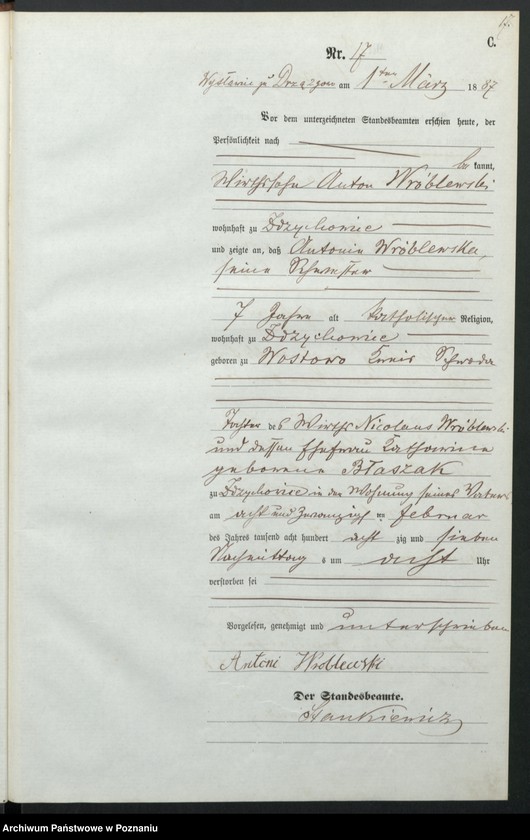 17.
C.
Nr. 17
Wysławie zu Drzązgowo am 1ten März 1887
Vor dem unterzeichneten Standesbeamten erschien heute, der
Persönlichkeit nach
be kannt,
Wirthssohn Anton Wróblewski
wohnhaft zu Idzychowice
und zeigte an, daß Antonie Wróblewska,
seine Schwester
7 Jahre alt katholischer Religion,
wohnhaft zu Idzychowice
geboren zu Wostowo Kreis Schroda
Tochter des Wirths Nicolaus Wróblewski
und dessen Ehefrau Katharina
geborene Błaszak
zu Idzychowice in der Wohnung seines Vaters
am acht und Zwanzigsten Februar
des Jahres tausend acht hundert acht zig und sieben
Nachmittag s um acht Uhr
verstorben sei
Vorgelesen, genehmigt und unterschrieben
Antoni Wroblewski
Der Standesbeamte.
Stankiewicz
Archiwum Państwowe w Poznaniu